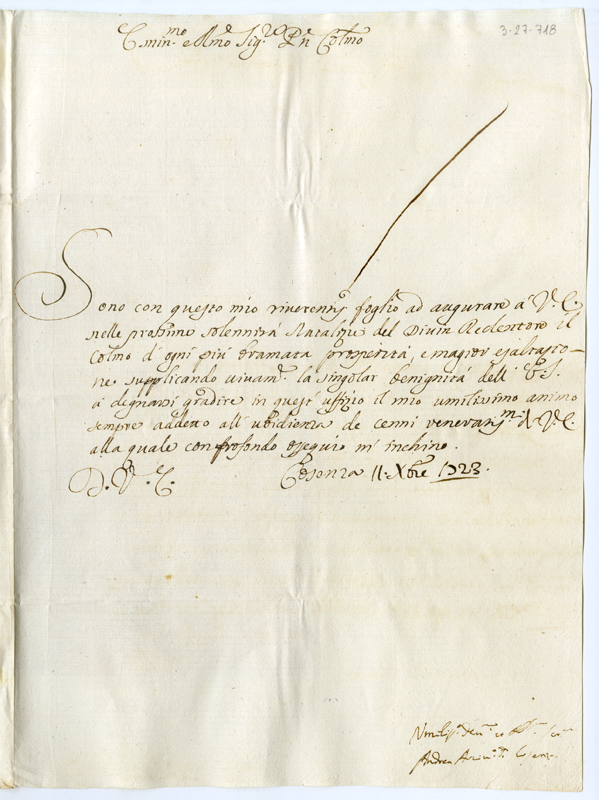 3-27-718
E.min.mo e R.mo Sig.re P.n Col.mo
Sono con questo mio riverentis.o foglio ad augurare à V. E.
nelle prossime solennità Natalizie del Divin Redentore il
Colmo d'ogni più bramata prosperità, e magior esaltazio-
ne supplicando vivam.e la singlar benignità dell' E. S.
à degnarsi gradire in quest' uffizio il mio umilissimo animo
sempre addetto all' ubidienza de cenni veneran.mi di V. E.
alla quale con profondo ossequio m' inchino.
D. V. E. Cosenza 11. Xbre 1723.
Umilis.o Dev.o et
Andrea